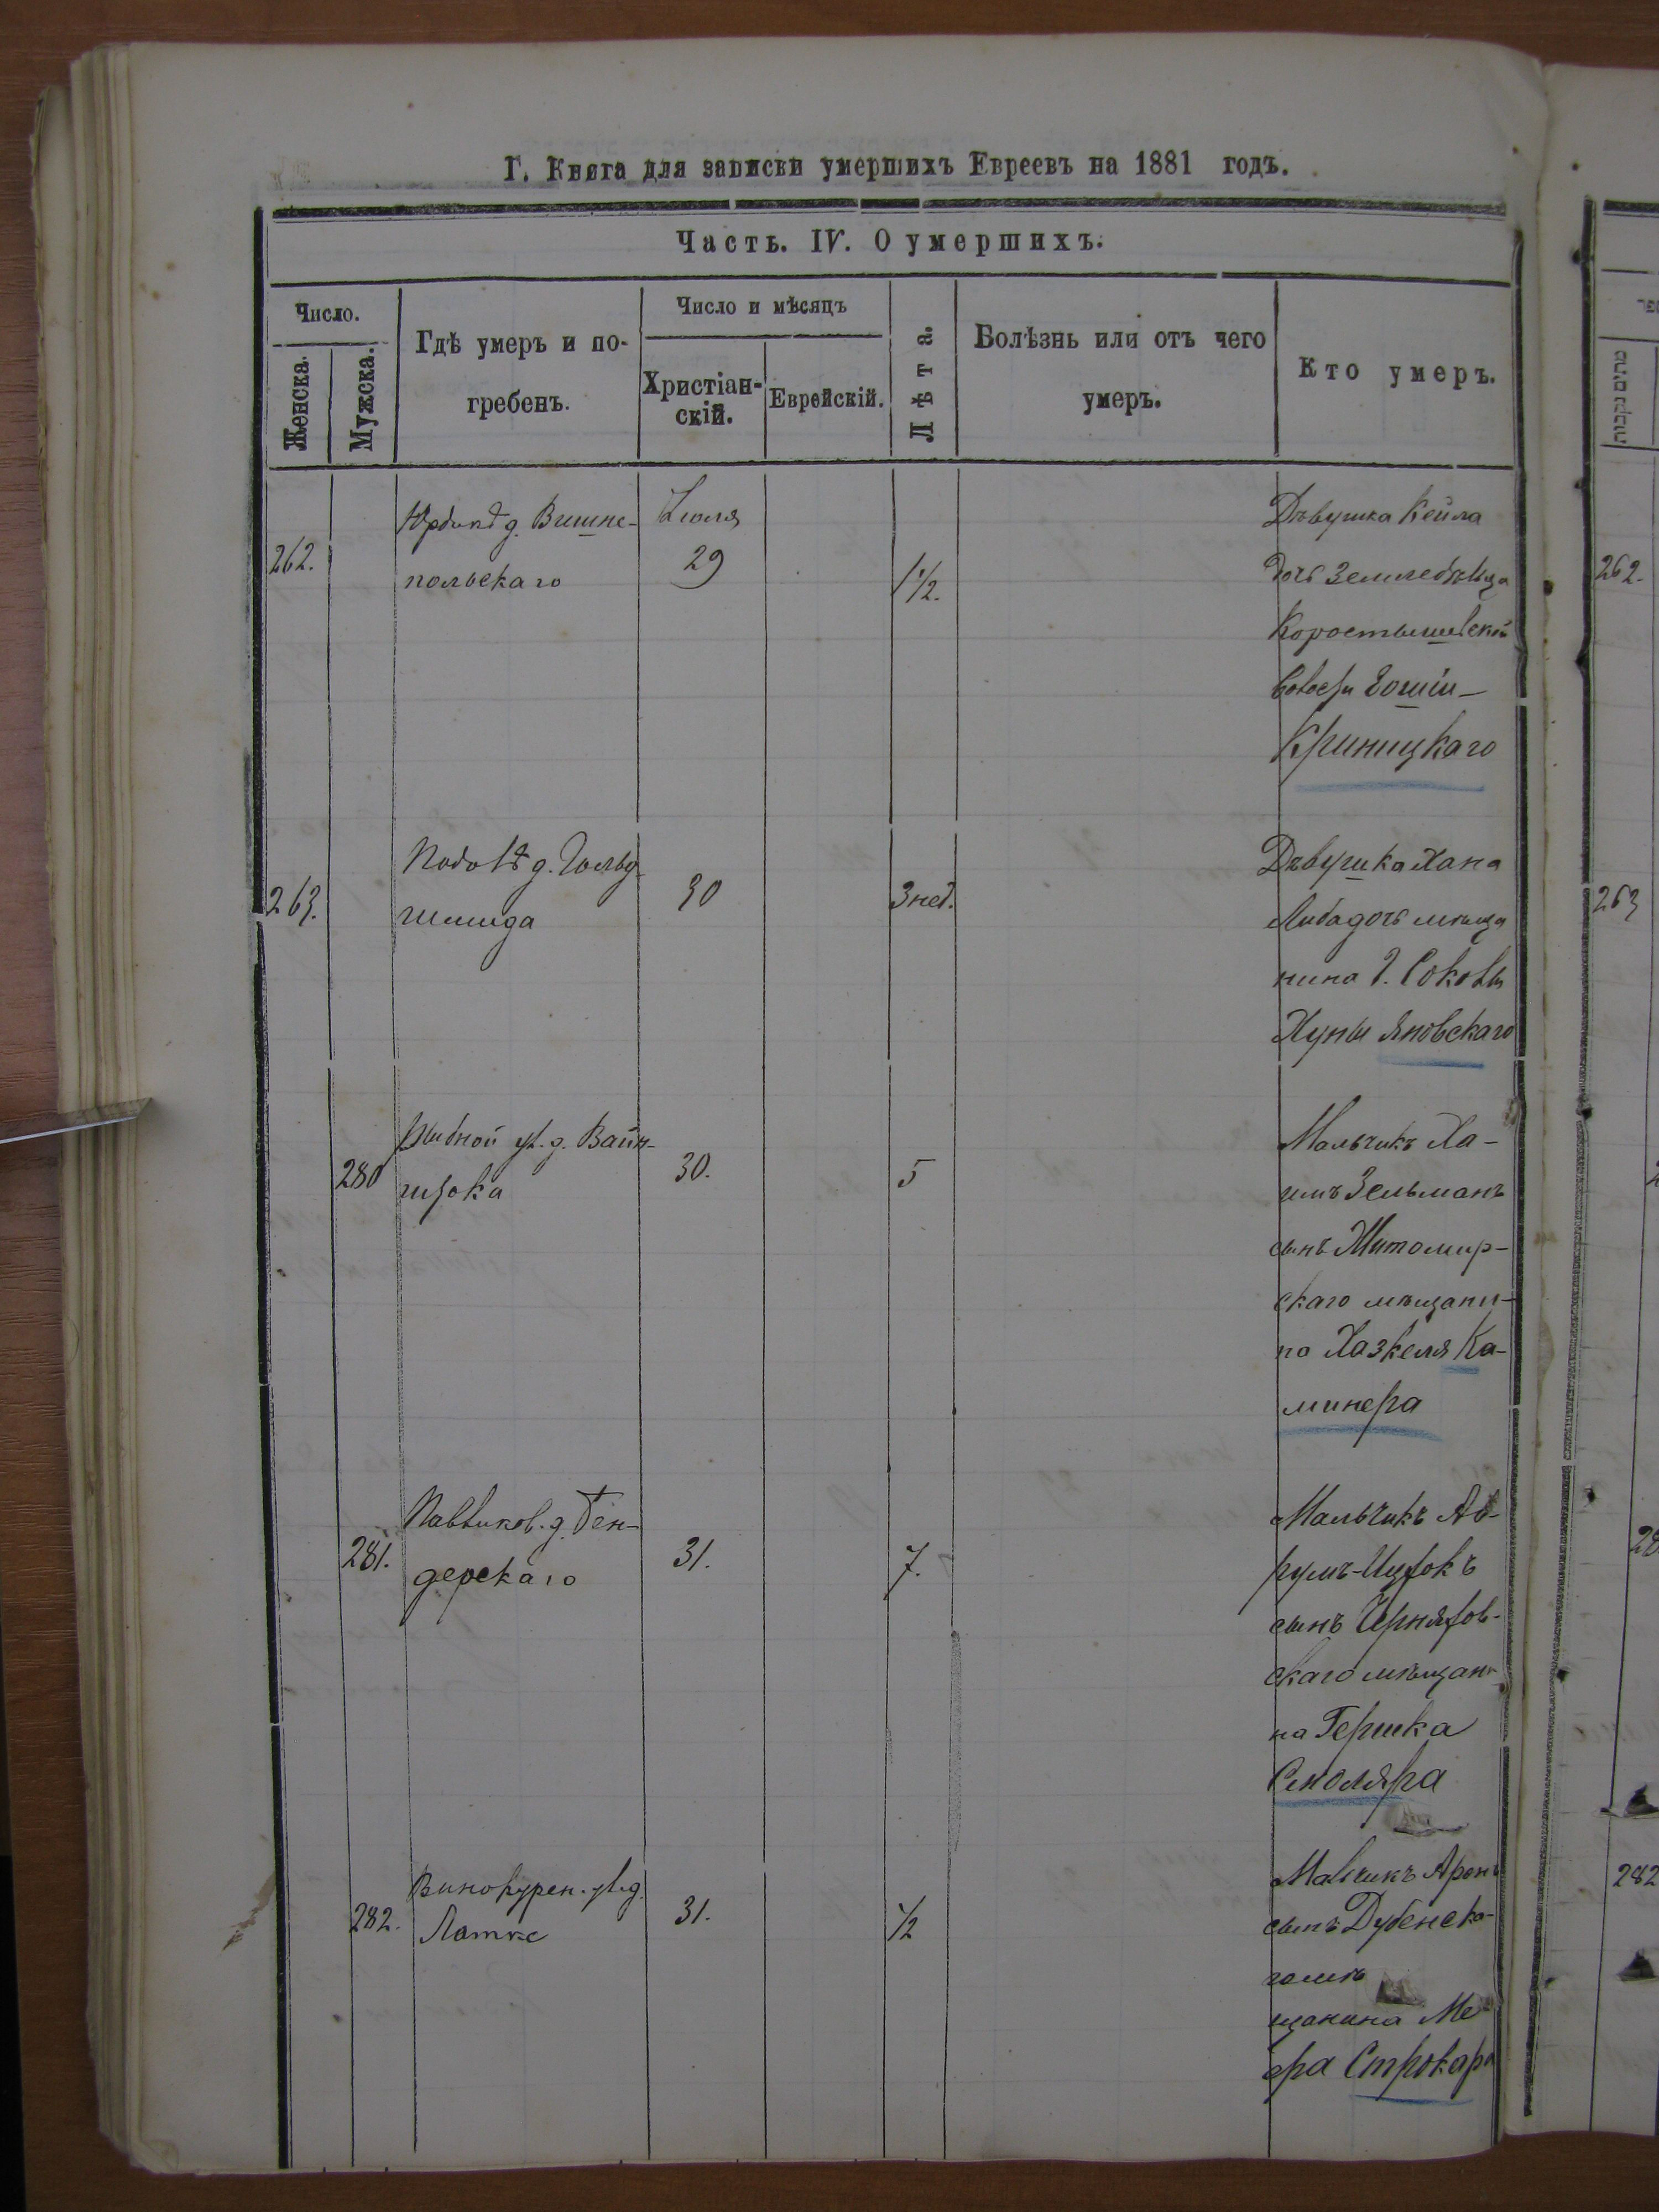 Г. Книга для записки умершихъ Евреевъ на 1881 годъ.
Часть. IV. О умершихъ.
Число.
Женска.
Мужска.
Гдѣ умеръ и по-
гребенъ.
Число и мѣсяцъ
Христіан-
скій.
Еврейскій.
Лѣта.
Болѣзнь или отъ чего
умеръ.
Кто умеръ.
262.
д. Вишне-
польскаго
Іюля
29
1 1/2.
Дѣвушка Кейла
дочь земледѣльца
Коростышевской
Криницкаго
263.
д. Гольд-
шмида
30
3 нед.
Дѣвушка Хана
Либа дочь мѣща
нина
Хуны Яновскаго
280
Рыбной ул. д. Вайн-
штока
30.
5
Мальчикъ Ха-
имъ Зельманъ
сынъ Житомир-
скаго мѣщани-
на Хазкеля Ка-
минера
281.
д. Бен-
дерскаго
31.
7.
Мальчикъ Аб-
румъ-Ицхокъ
сынъ Черняхов-
скаго мѣщани-
на Гершка
Смоляра
282.
Винокурен. ул. д.
Латке
31.
1/2
Мальчикъ Аронъ
сынъ Дубенска-
го мѣ
щанина Ме
ера Строкера
262.
263
282